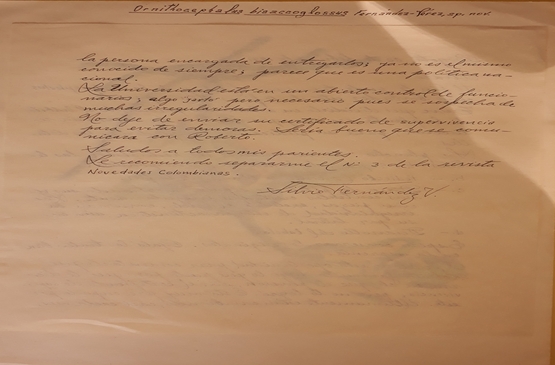 Ornithocephalus bizaccoglossus Fernández-Pérez, sp. nov.
la persona encargada de entregarlos; ya no es el mismo
conocido de siempre; parece que es una política na-
cional.
La Universidad está en un abierto control de funcio-
narios, algo justo pero necesario pues se sospecha de
muchas irregularidades.
No deje de enviar su certificado de supervivencia
para evitar demoras. Sería bueno que se comu-
nicara con Roberto.
Saludos a todos mis parientes.
Le recomiendo separarme el No. 3 de la revista
Novedades Colombianas.
Silvio Fernández V.